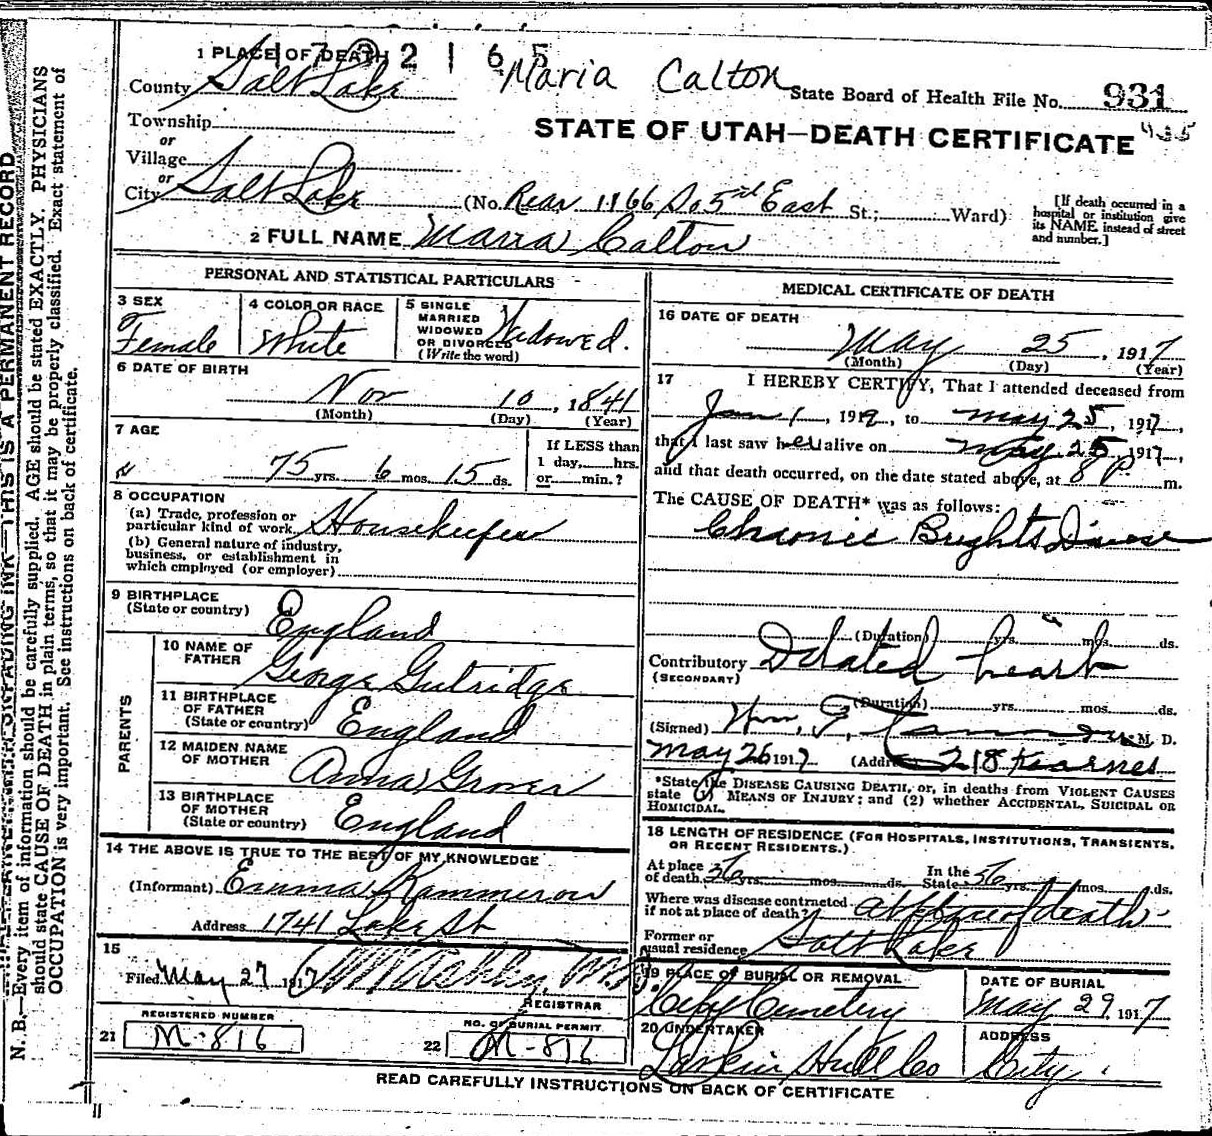 1 PLACE OF DEATH
1732165
Maria Calton
County Salt Lake
State Board of Health File No. 931
435
Township
or
Village
STATE OF UTAH—DEATH CERTIFICATE
or
City Salt Lake (No. Rear 1166 So 5th East St.; Ward)
[If death occurred in a hospital or institution give its NAME instead of street and number.]
2 FULL NAME Maria Calton
PERSONAL AND STATISTICAL PARTICULARS
3 SEX
Female
4 COLOR OR RACE
White
5 SINGLE
MARRIED
WIDOWED
OR DIVORCED
(Write the word)
Widowed.
6 DATE OF BIRTH
Nov 10, 1841
(Month) (Day) (Year)
7 AGE
75 yrs. 6 mos. 15 ds.
If LESS than
1 day, hrs.
or min.?
8 OCCUPATION
(a) Trade, profession or
particular kind of work Housekeeper
(b) General nature of industry,
business, or establishment in
which employed (or employer)
9 BIRTHPLACE
(State or country) England
PARENTS
10 NAME OF
FATHER George Gutridge
11 BIRTHPLACE
OF FATHER
(State or country) England
12 MAIDEN NAME
OF MOTHER Anna Grover
13 BIRTHPLACE
OF MOTHER
(State or country) England
14 THE ABOVE IS TRUE TO THE BEST OF MY KNOWLEDGE
(Informant) Emma Kammerow
Address 1741 Lake St
15
Filed May 27 1917
REGISTRAR
REGISTERED NUMBER
21 M-816
NO. OF BURIAL PERMIT
22 M-816
MEDICAL CERTIFICATE OF DEATH
16 DATE OF DEATH
May 25, 1917
(Month) (Day) (Year)
17 I HEREBY CERTIFY, That I attended deceased from
Jan 1, 191, to May 25, 1917,
that I last saw her alive on May 25, 1917,
and that death occurred, on the date stated above, at 8 P. m.
The CAUSE OF DEATH* was as follows:
Chronic Brights Disease
(Duration) yrs. mos. ds.
Contributory Dilated heart
(SECONDARY)
(Duration) yrs. mos. ds.
(Signed) Wm. F. M. D.
May 26 1917 (Address) 218 Kearnes
*State the DISEASE CAUSING DEATH, or, in deaths from VIOLENT CAUSES
state (1) MEANS OF INJURY; and (2) whether ACCIDENTAL, SUICIDAL OR
HOMICIDAL.
18 LENGTH OF RESIDENCE (FOR HOSPITALS, INSTITUTIONS, TRANSIENTS,
OR RECENT RESIDENTS.)
At place
of death 36 yrs. mos. ds.
In the
State 36 yrs. mos. ds.
Where was disease contracted
if not at place of death? at place of death.
Former or
usual residence Salt Lake
19 PLACE OF BURIAL OR REMOVAL
City Cemetery
DATE OF BURIAL
May 29, 1917
20 UNDERTAKER
Larkin Hull Co
ADDRESS
City.
READ CAREFULLY INSTRUCTIONS ON BACK OF CERTIFICATE
UNFADING INK—THIS IS A PERMANENT RECORD
N. B.—Every item of information should be carefully supplied. AGE should be stated EXACTLY. PHYSICIANS
should state CAUSE OF DEATH in plain terms, so that it may be properly classified. Exact statement of
OCCUPATION is very important. See instructions on back of certificate.